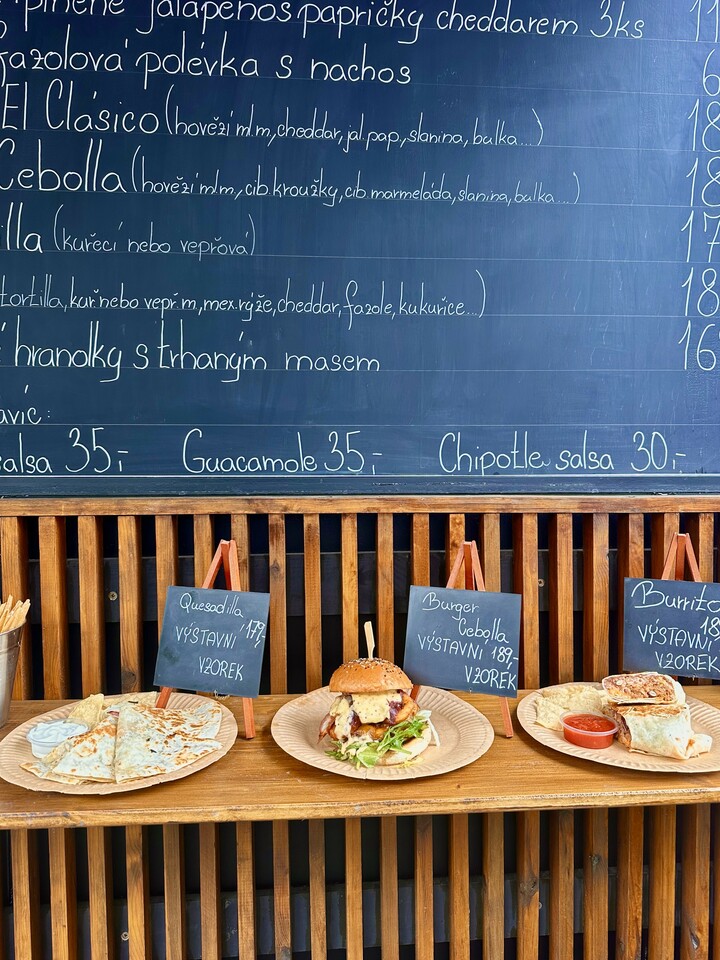 plněné jalapeños papričky cheddarem 3ks 11
fazolová polévka s nachos 6
El Clásico (hovězí ml.m, cheddar, jal.pap, slanina, bulka...) 18
Cebolla (hovězí ml.m, cib.kroužky, cib.marmeláda, slanina, bulka...) 18
illa (kuřecí nebo vepřová) 17
tortilla, kuř. nebo vepř.m, mex.rýže, cheddar, fazole, kukuřice...) 18
hranolky s trhaným masem 16
avíc:
salsa 35,- Guacamole 35,- Chipotle salsa 30,-
Quesadilla
179,-
VÝSTAVNÍ
VZOREK
Burger
Cebolla
VÝSTAVNÍ 189,-
VZOREK
Burrito
18
VÝSTAVNÍ
VZOREK